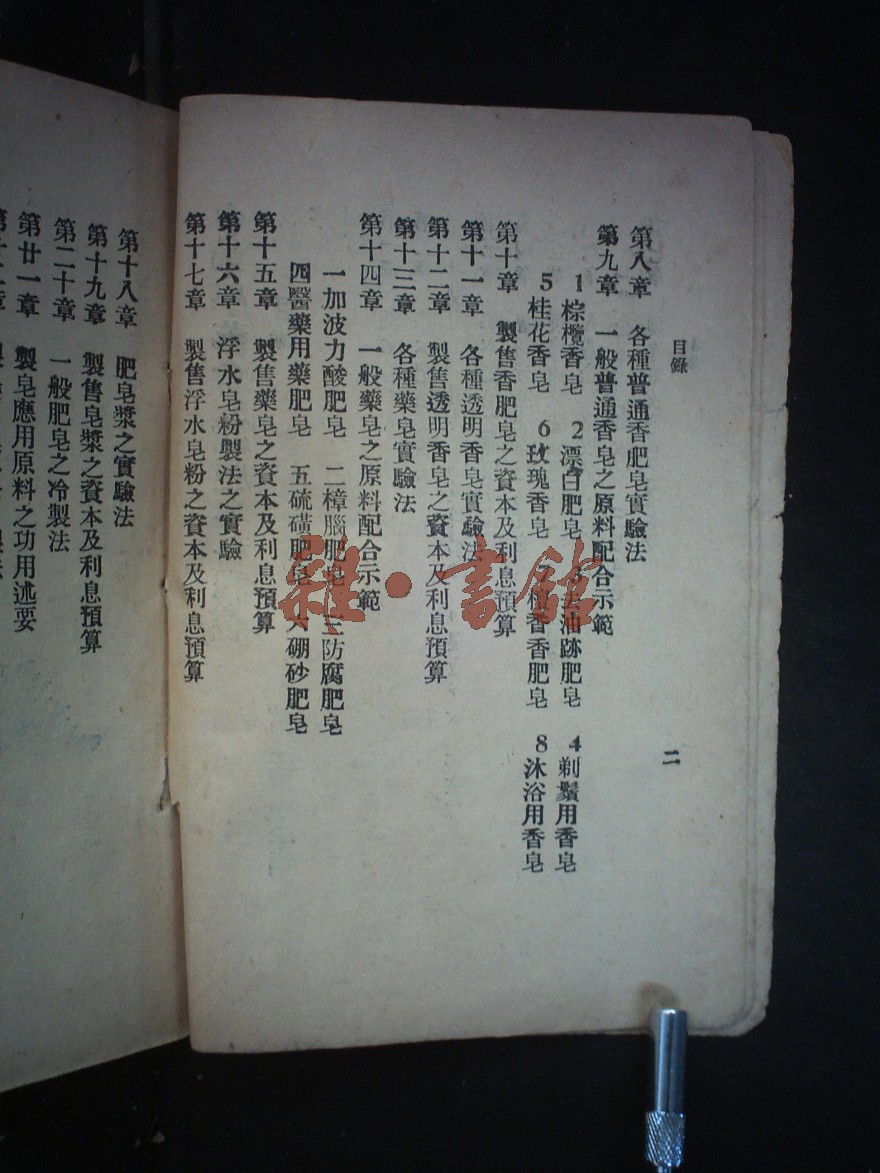 目錄
二
第八章 各種普通香肥皂實驗法
第九章 一般普通香皂之原料配合示範
1棕欖香皂 2漂白肥皂 3去油跡肥皂 4剃鬚用香皂
5桂花香皂 6玫瑰香皂 7檀香香肥皂 8沐浴用香皂
第十章 製售香肥皂之資本及利息預算
第十一章 各種透明香皂實驗法
第十二章 製售透明香皂之資本及利息預算
第十三章 各種藥皂實驗法
第十四章 一般藥皂之原料配合示範
一加波力酸肥皂 二樟腦肥皂 三防腐肥皂
四醫藥用藥肥皂 五硫磺肥皂 六硼砂肥皂
第十五章 製售藥皂之資本及利息預算
第十六章 浮水皂粉製法之實驗
第十七章 製售浮水皂粉之資本及利息預算
第十八章 肥皂漿之實驗法
第十九章 製售皂漿之資本及利息預算
第二十章 一般肥皂之冷製法
第廿一章 製皂應用原料之功用述要
雜·書館